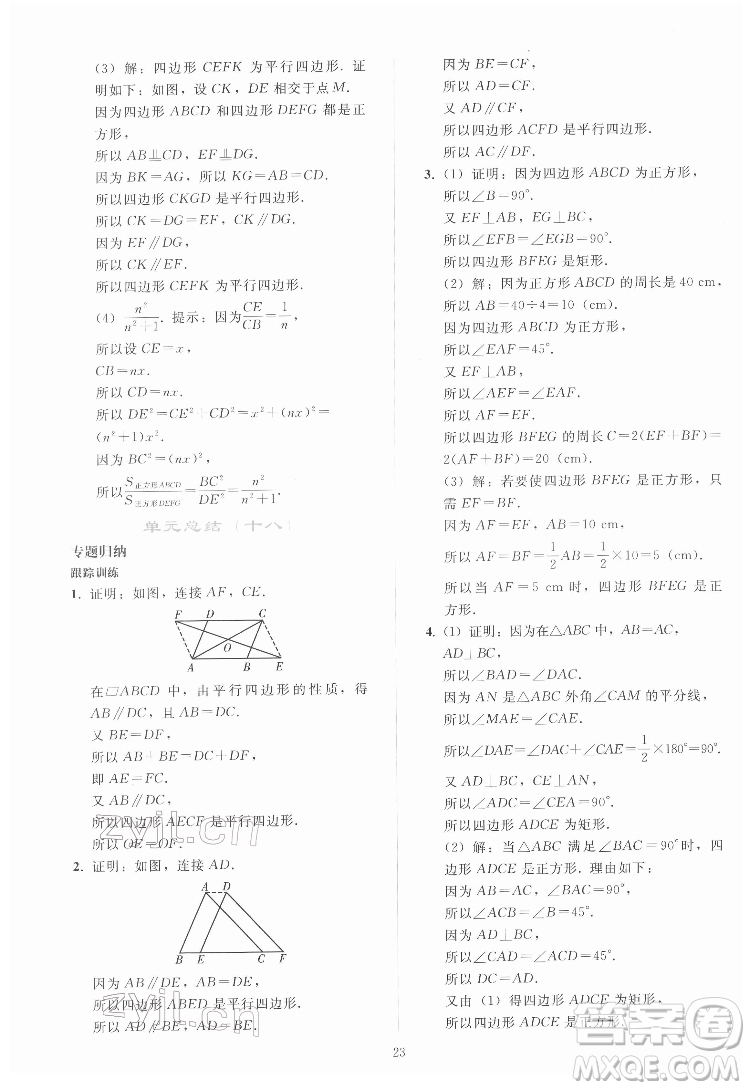 (3) 解：四边形 CEFK 为平行四边形．证
明如下：如图，设 CK，DE 相交于点 M．
因为四边形 ABCD 和四边形 DEFG 都是正
方形，
所以 AB∥CD，EF∥DG．
因为 BK=AG，所以 KG=AB=CD．
所以四边形 CKGD 是平行四边形．
所以 CK=DG=EF，CK∥DG．
因为 EF∥DG，
所以 CK∥EF．
所以四边形 CEFK 为平行四边形．
(4) n²/(n²+1)．提示：因为 CE/CB=1/n，
所以设 CE=x，
CB=nx．
所以 CD=nx．
所以 DE²=CE²+CD²=x²+(nx)²=
(n²+1)x²．
因为 BC²=(nx)²=n²x²，
所以 S正方形ABCD/S正方形DEFG=BC²/DE²=n²/(n²+1)．
单元总结（十八）
专题归纳
跟踪训练
1. 证明：如图，连接 AF，CE．
F D C
O
A B E
在▱ABCD 中，由平行四边形的性质，得
AB∥DC，且 AB=DC．
又 BE=DF，
所以 AB+BE=DC+DF，
即 AE=FC．
又 AB∥DC，
所以四边形 AECF 是平行四边形．
所以 OE=OF．
2. 证明：如图，连接 AD．
A D
B E C F
因为 AB∥DE，AB=DE，
所以四边形 ABED 是平行四边形．
所以 AD∥BE，AD=BE．
因为 BE=CF，
所以 AD=CF．
又 AD∥CF，
所以四边形 ACFD 是平行四边形．
所以 AC∥DF．
3. (1) 证明：因为四边形 ABCD 为正方形，
所以∠B=90°．
又 EF⊥AB，EG⊥BC，
所以∠EFB=∠EGB=90°．
所以四边形 BFEG 是矩形．
(2) 解：因为正方形 ABCD 的周长是 40 cm，
所以 AB=40÷4=10 (cm)．
因为四边形 ABCD 为正方形，
所以∠EAF=45°．
又 EF⊥AB，
所以∠AEF=∠EAF．
所以 AF=EF．
所以四边形 BFEG 的周长 C=2(EF+BF)=
2(AF+BF)=20 (cm)．
(3) 解：若要使四边形 BFEG 是正方形，只
需 EF=BF．
因为 AF=EF，AB=10 cm，
所以 AF=1/2 AB=1/2×10=5 (cm)．
所以当 AF=5 cm 时，四边形 BFEG 是正
方形．
4. (1) 证明：因为在△ABC 中，AB=AC，
AD⊥BC，
所以∠BAD=∠DAC．
因为 AN 是△ABC 外角∠CAM 的平分线，
所以∠MAE=∠CAE．
所以∠DAE=∠DAC+∠CAE=1/2×180°=90°．
又 AD⊥BC，CE⊥AN，
所以∠ADC=∠CEA=90°．
所以四边形 ADCE 为矩形．
(2) 解：当△ABC 满足∠BAC=90°时，四
边形 ADCE 是正方形．理由如下：
因为 AB=AC，∠BAC=90°，
所以∠ACB=∠B=45°．
因为 AD⊥BC，
所以∠CAD=∠ACD=45°．
所以 DC=AD．
又由（1）得四边形 ADCE 为矩形，
所以四边形 ADCE 是正方形．
23
zyil.cn
zyil.cn
答案圈
MXQE.COM